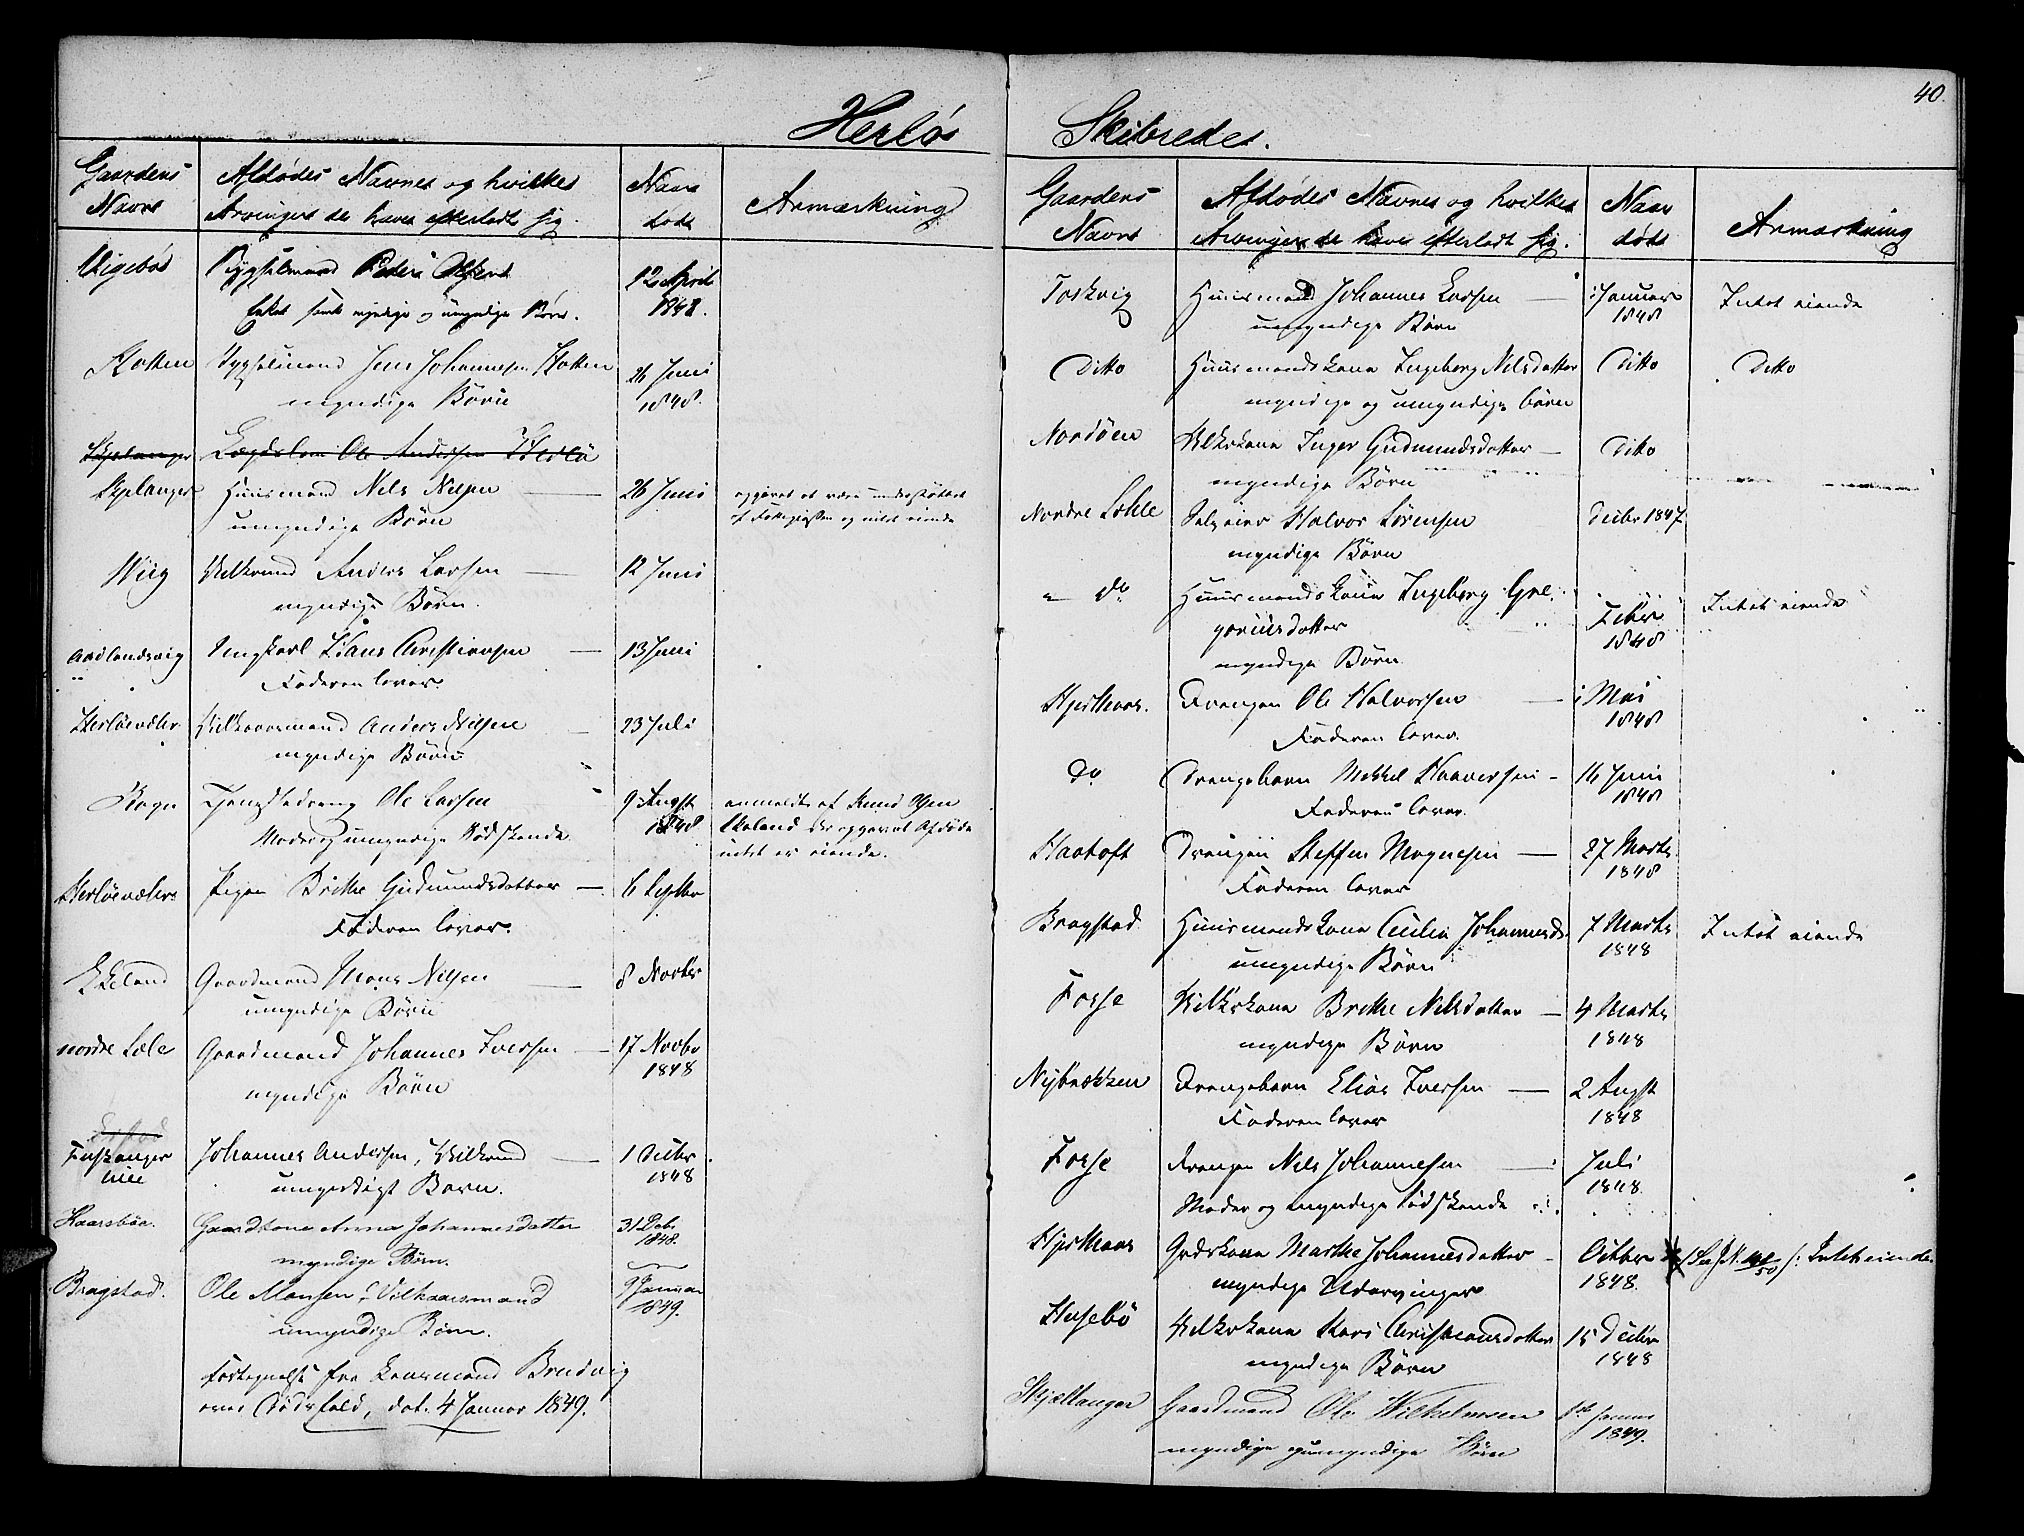 40.
Herlös Skibredes.
Gaardens Navne
Afdødes Navne og hvilke
Arvinger de have efterladt sig.
Naar døde
Anmærkning
Vigebøe
Bygselmand Peder Olsen
Enke samt myndige og umyndige Børn.
12 April
1848.
Kotten
Bygselmand Jens Johannesen Kotten
myndige Børn
26 Juni
1848.
Skjelanger
Lægdslem Ole Andersen Herlö
Skjelanger
Huusmand Nils Nilsen
umyndige Børn
26 Juni
opgivet at være understøttet
af Fattigkassen og intet eiende
Wiig
Vilkmand Anders Larsen
myndige Børn.
12 Juni
Aadlandsvig
Ungkarl Hans Christiansen
Faderen lever.
13 Juni
Herløevæhr
Vilkaarsmand Anders Nilsen
myndige Børn
23 Juli
Bogn
Tjenestedreng Ole Larsen
Moder og umyndige Sødskende
9 Augst
1848
anmeldt af Knud
Ekeland der opgivet Afdøde
intet er eiende.
Herløevæhrs
Pigen Brithe Gudmundsdatter
Faderen lever.
6 Septbr
Ekeland
Gaardmand Mons Nilsen
umyndige Børn
8 Novbr
nordre Sæle
Gaardmand Johannes Iversen
myndige Børn
17 Novbr
1848
Fuskanger
Johannes Andersen, Vilkmand
umyndigt Barn.
1 Decbr
1848
Haarsbøe.
Gaardkone Anna Johannesdatter
myndige Børn.
31 Debr
1848.
Bragstad.
Ole Monsen, Vilkaarsmand
umyndige Børn.
9 Januar
1849.
Fortegnelse fra Lensmand Brudvig
over Dødsfald, dat. 4 Januar 1849.
Gaardens Navne
Afdødes Navne og hvilke
Arvinger de have efterladt sig.
Naar døde
Anmærkning
Toskvig
Huusmand Johannes Larsen
umyndige Børn
i Januar
1848
Intet eiende
Ditto
Huusmandskone Ingeborg Nilsdatter
myndige og umyndige børn
Ditto
Ditto
Nordöen
Vilkskone Inger Gudmundsdatter
myndige Børn
Ditto
Nordre Sæhle
Selveier Halvor Sörensen
myndige Børn
Decbr 1847
" do
Huusmandskone Ingeborg Gre-
goriusdatter
myndige Børn
Febr
1848
Intet eiende
Hjertaas.
Drengen Ole Halvorsen
Faderen lever.
i Mai
1848
do
Drengebarn Mikkel Haaversen
Faderen lever.
16 Juni
1848
Haatoft
Drengen Steffen Magnesen
Faderen lever
27 Marts
1848
Bragstad
Huusmandskone Cicilia Johannesd.
umyndige Børn
7 Marts
1848
Intet eiende
Fosse
Vilkskone Brithe Nilsdatter
myndige Børn
4 Marts
1848
Nybrækken
Drengebarn Elias Iversen
Faderen lever
2 Augst
1848
Fosse
Drengen Nils Johannesen
Moder og myndige Sødskende
Juli
1848
Hjertaas
Grdskone Marthe Johannesdatter
myndige Udarvinger
Octbr
1848.
Intet eiende
Husebö
Vilkskone Kari Christiansdatter
myndige Børn
15 Decbr
1848
Skjellanger
Gaardmand Ole Wilhelmsen
myndige og umyndige Börn
Januar
1849.